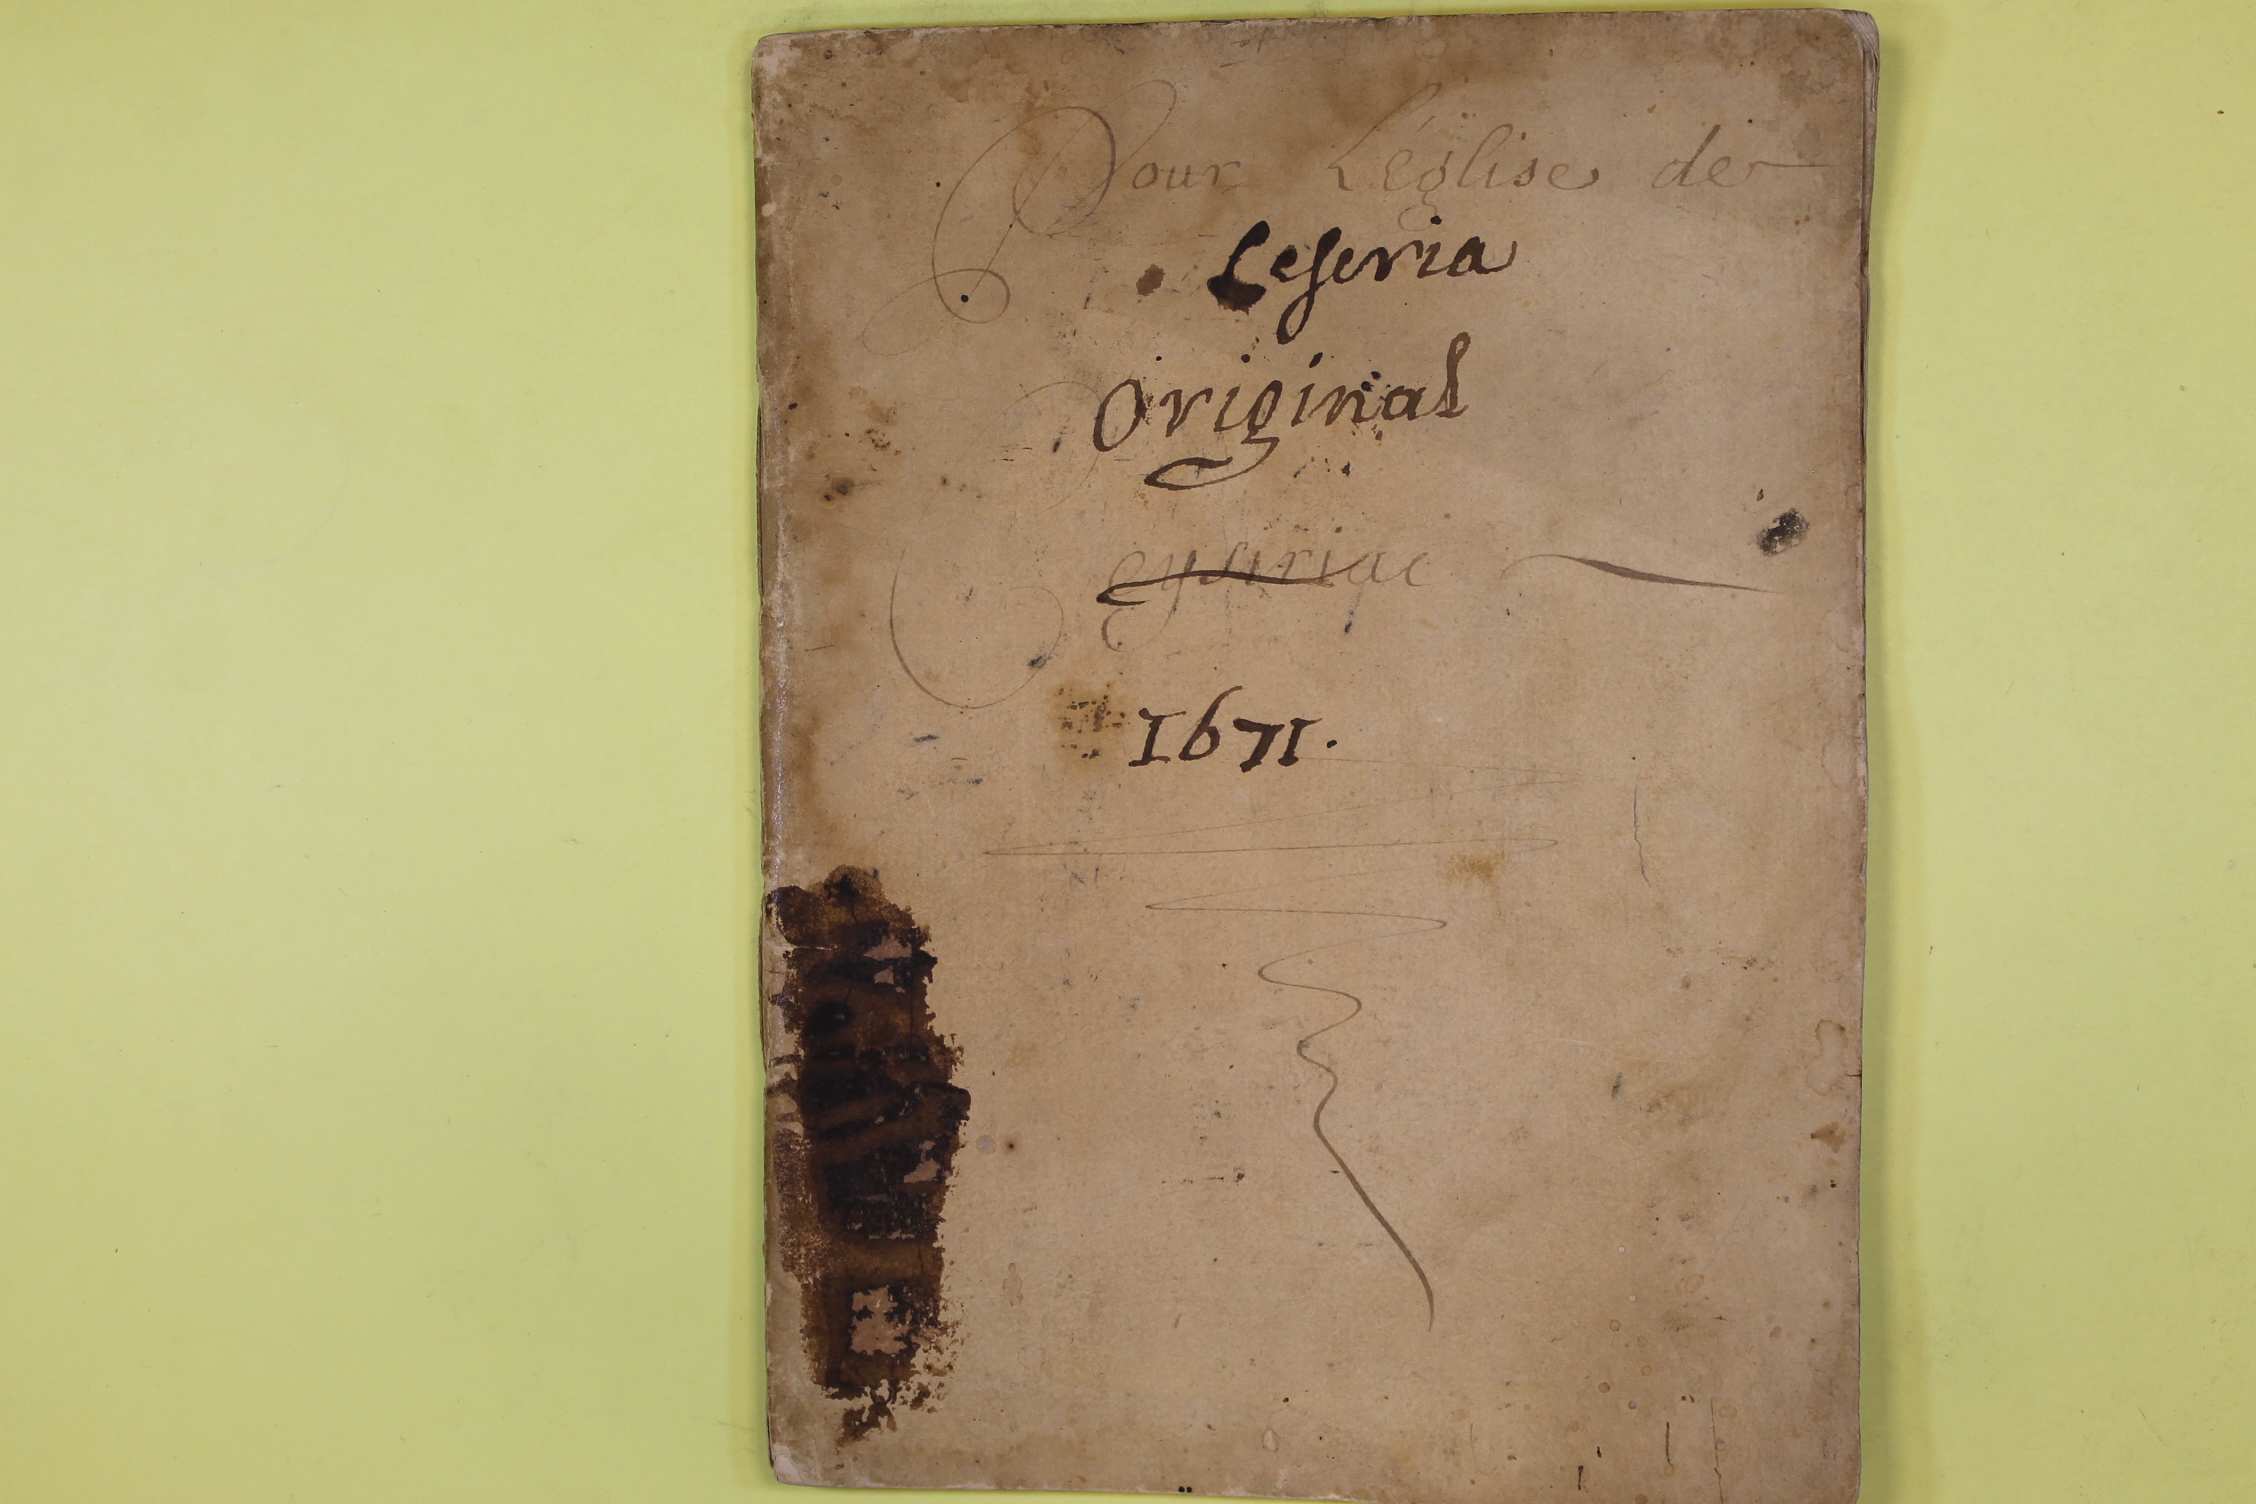 Pour L'église de
Leseria
Original
Ceyseriac
1671.